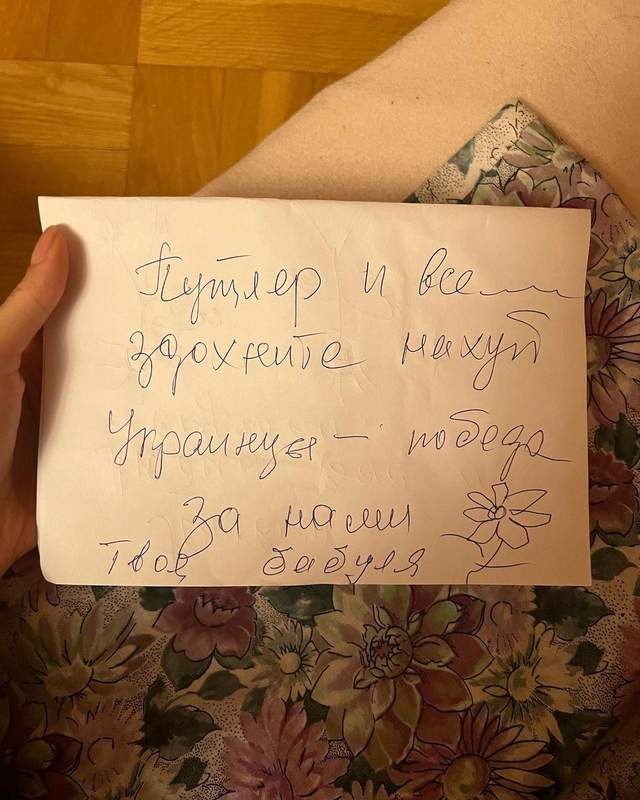 Путлер и все
здохните нахуй
Украинцы — победа
за нами
твоя бабуля